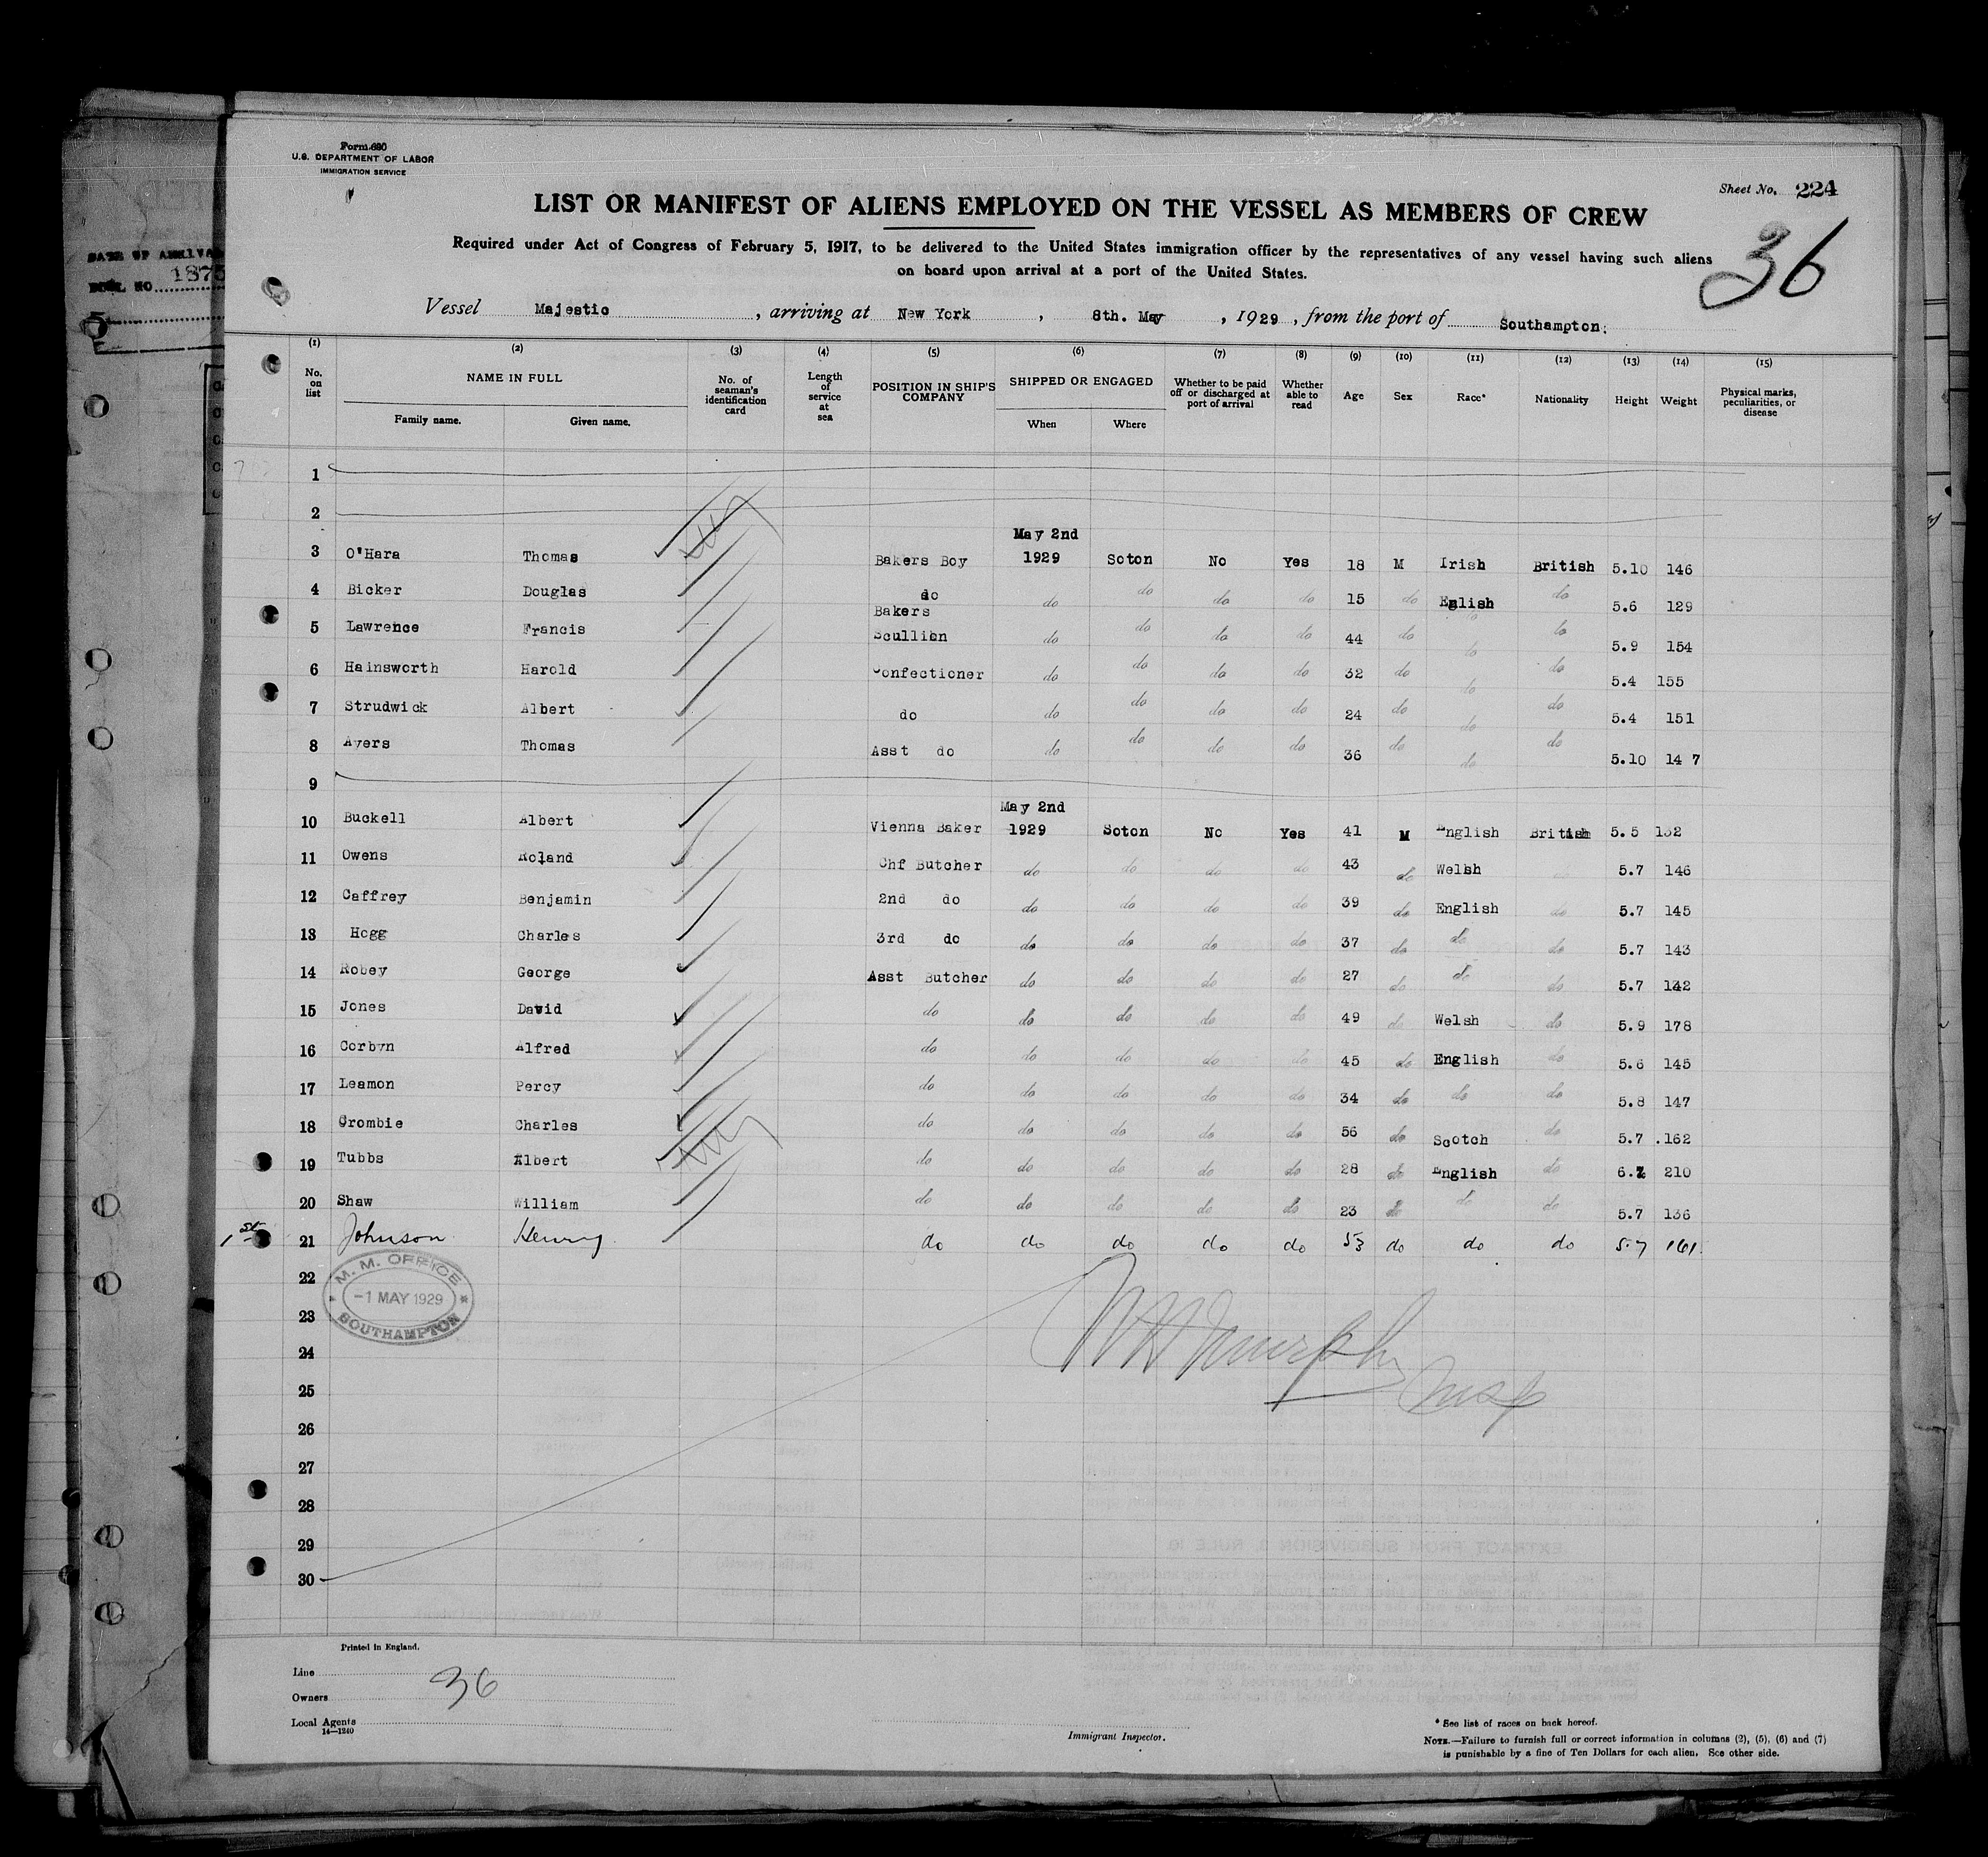 Form 680
U.S. DEPARTMENT OF LABOR
IMMIGRATION SERVICE
Sheet No. 224
36
LIST OR MANIFEST OF ALIENS EMPLOYED ON THE VESSEL AS MEMBERS OF CREW
Required under Act of Congress of February 5, 1917, to be delivered to the United States immigration officer by the representatives of any vessel having such aliens
on board upon arrival at a port of the United States.
Vessel Majestic, arriving at New York, 8th. May, 1929, from the port of Southampton.
(1) (2) (3) (4) (5) (6) (7) (8) (9) (10) (11) (12) (13) (14) (15)
No. on list
NAME IN FULL
Family name. Given name.
No. of seaman's identification card
Length of service at sea
POSITION IN SHIP'S COMPANY
SHIPPED OR ENGAGED
When Where
Whether to be paid off or discharged at port of arrival
Whether able to read
Age
Sex
Race*
Nationality
Height
Weight
Physical marks, peculiarities, or disease
1
2
3 O'Hara Thomas Bakers Boy May 2nd 1929 Soton No Yes 18 M Irish British 5.10 146
4 Bicker Douglas do do do do do 15 do English do 5.6 129
5 Lawrence Francis Bakers Scullion do do do do 44 do do do 5.9 154
6 Hainsworth Harold Confectioner do do do do 32 do do do 5.4 155
7 Strudwick Albert do do do do do 24 do do do 5.4 151
8 Ayers Thomas Asst do do do do do 36 do do do 5.10 147
9
10 Buckell Albert Vienna Baker May 2nd 1929 Soton No Yes 41 M English British 5.5 132
11 Owens Roland Chf Butcher do do do do 43 do Welsh 5.7 146
12 Caffrey Benjamin 2nd do do do do do 39 do English do 5.7 145
13 Hogg Charles 3rd do do do do do 37 do do do 5.7 143
14 Robey George Asst Butcher do do do do 27 do do do 5.7 142
15 Jones David do do do do do 49 do Welsh do 5.9 178
16 Corbyn Alfred do do do do do 45 do English do 5.6 145
17 Leamon Percy do do do do do 34 do do do 5.8 147
18 Crombie Charles do do do do do 56 do Scotch do 5.7 .162
19 Tubbs Albert do do do do do 28 do English do 6. 210
20 Shaw William do do do do do 23 do do do 5.7 136
1st 21 Johnson Henry do do do do do 53 do do do 5.7 161
22
23
24
25
26
27
28
29
30
M. M. OFFICE
-1 MAY 1929
SOUTHAMPTON
Murphy
Insp
Printed in England.
Line
36
Owners
Local Agents
14-1240
Immigrant Inspector.
* See list of races on back hereof.
NOTE.—Failure to furnish full or correct information in columns (2), (5), (6) and (7)
is punishable by a fine of Ten Dollars for each alien. See other side.
1875